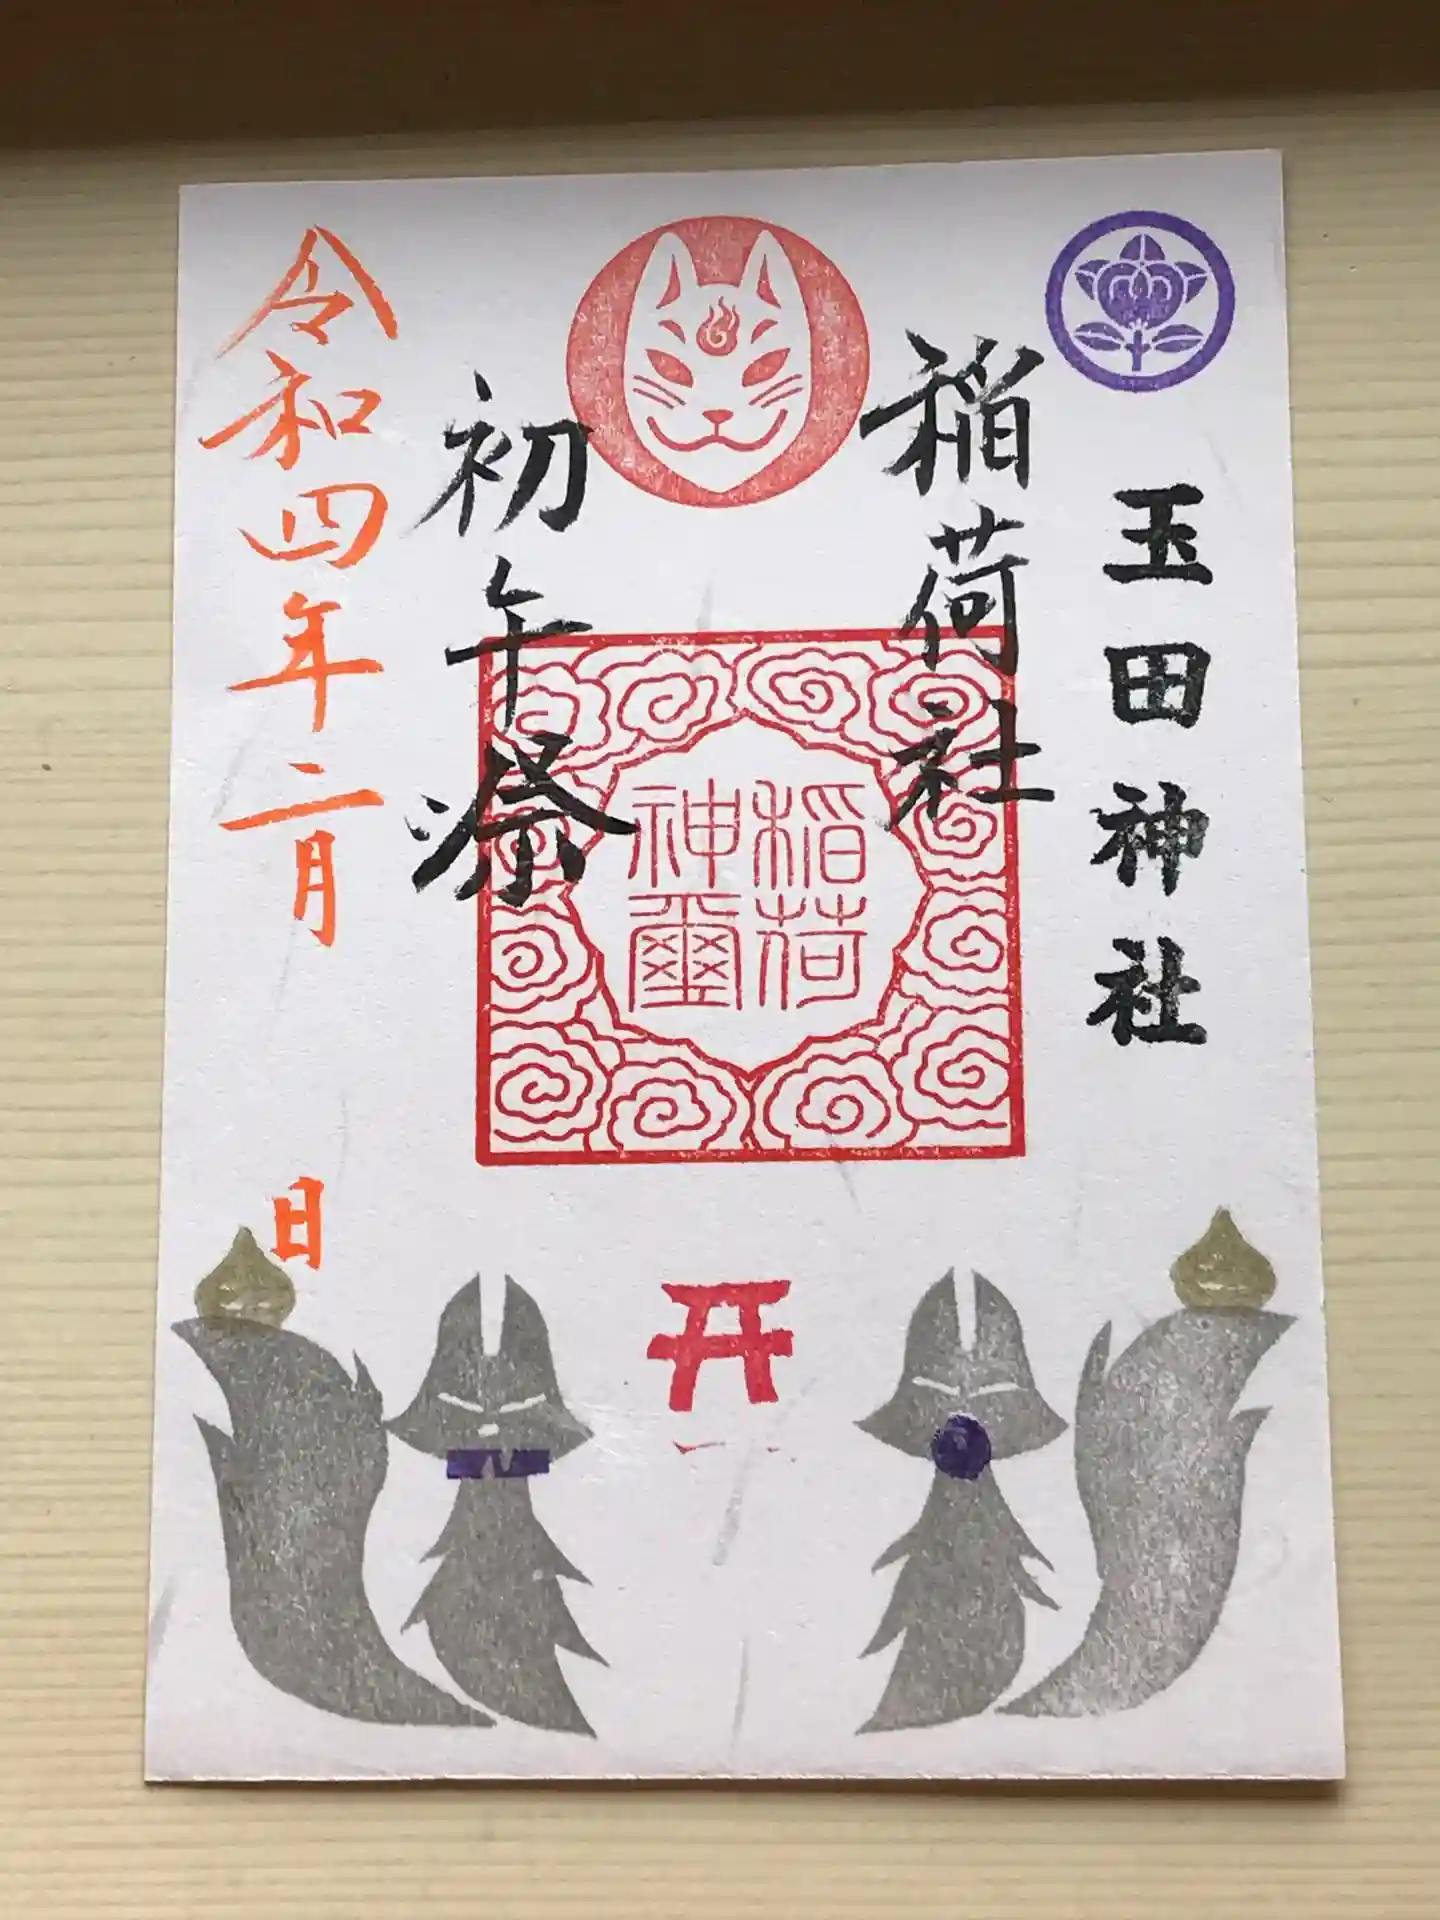 玉田神社
稲荷社
稲荷
神璽
初午祭
令和四年二月 日